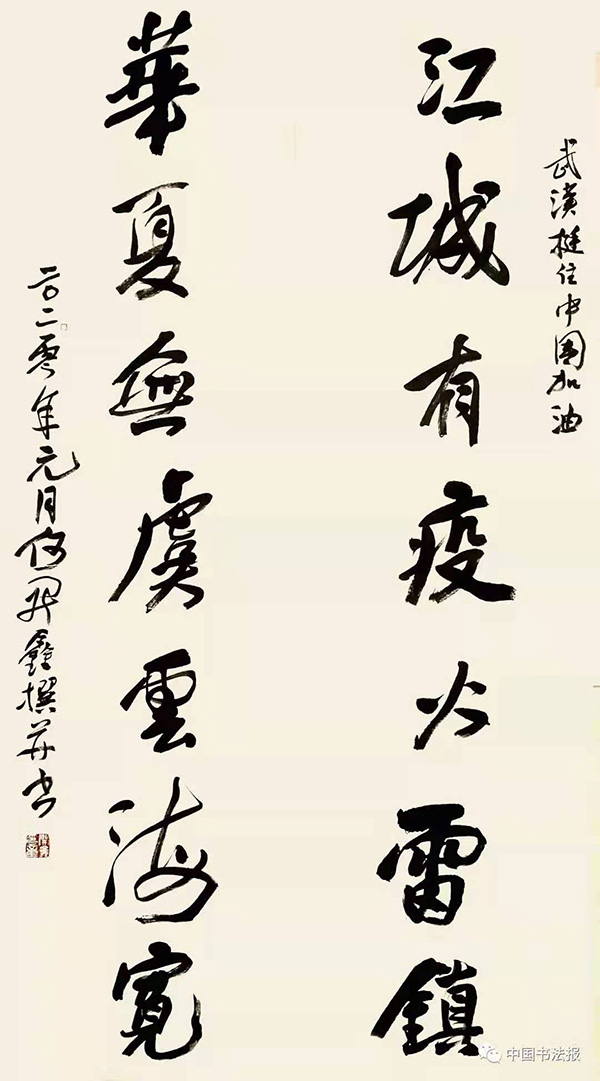 武漢挺住中国加油
江城有疫火雷鎮
華夏無虞雲海寬
二〇二零年元月何開鑫撰并书
中国书法报